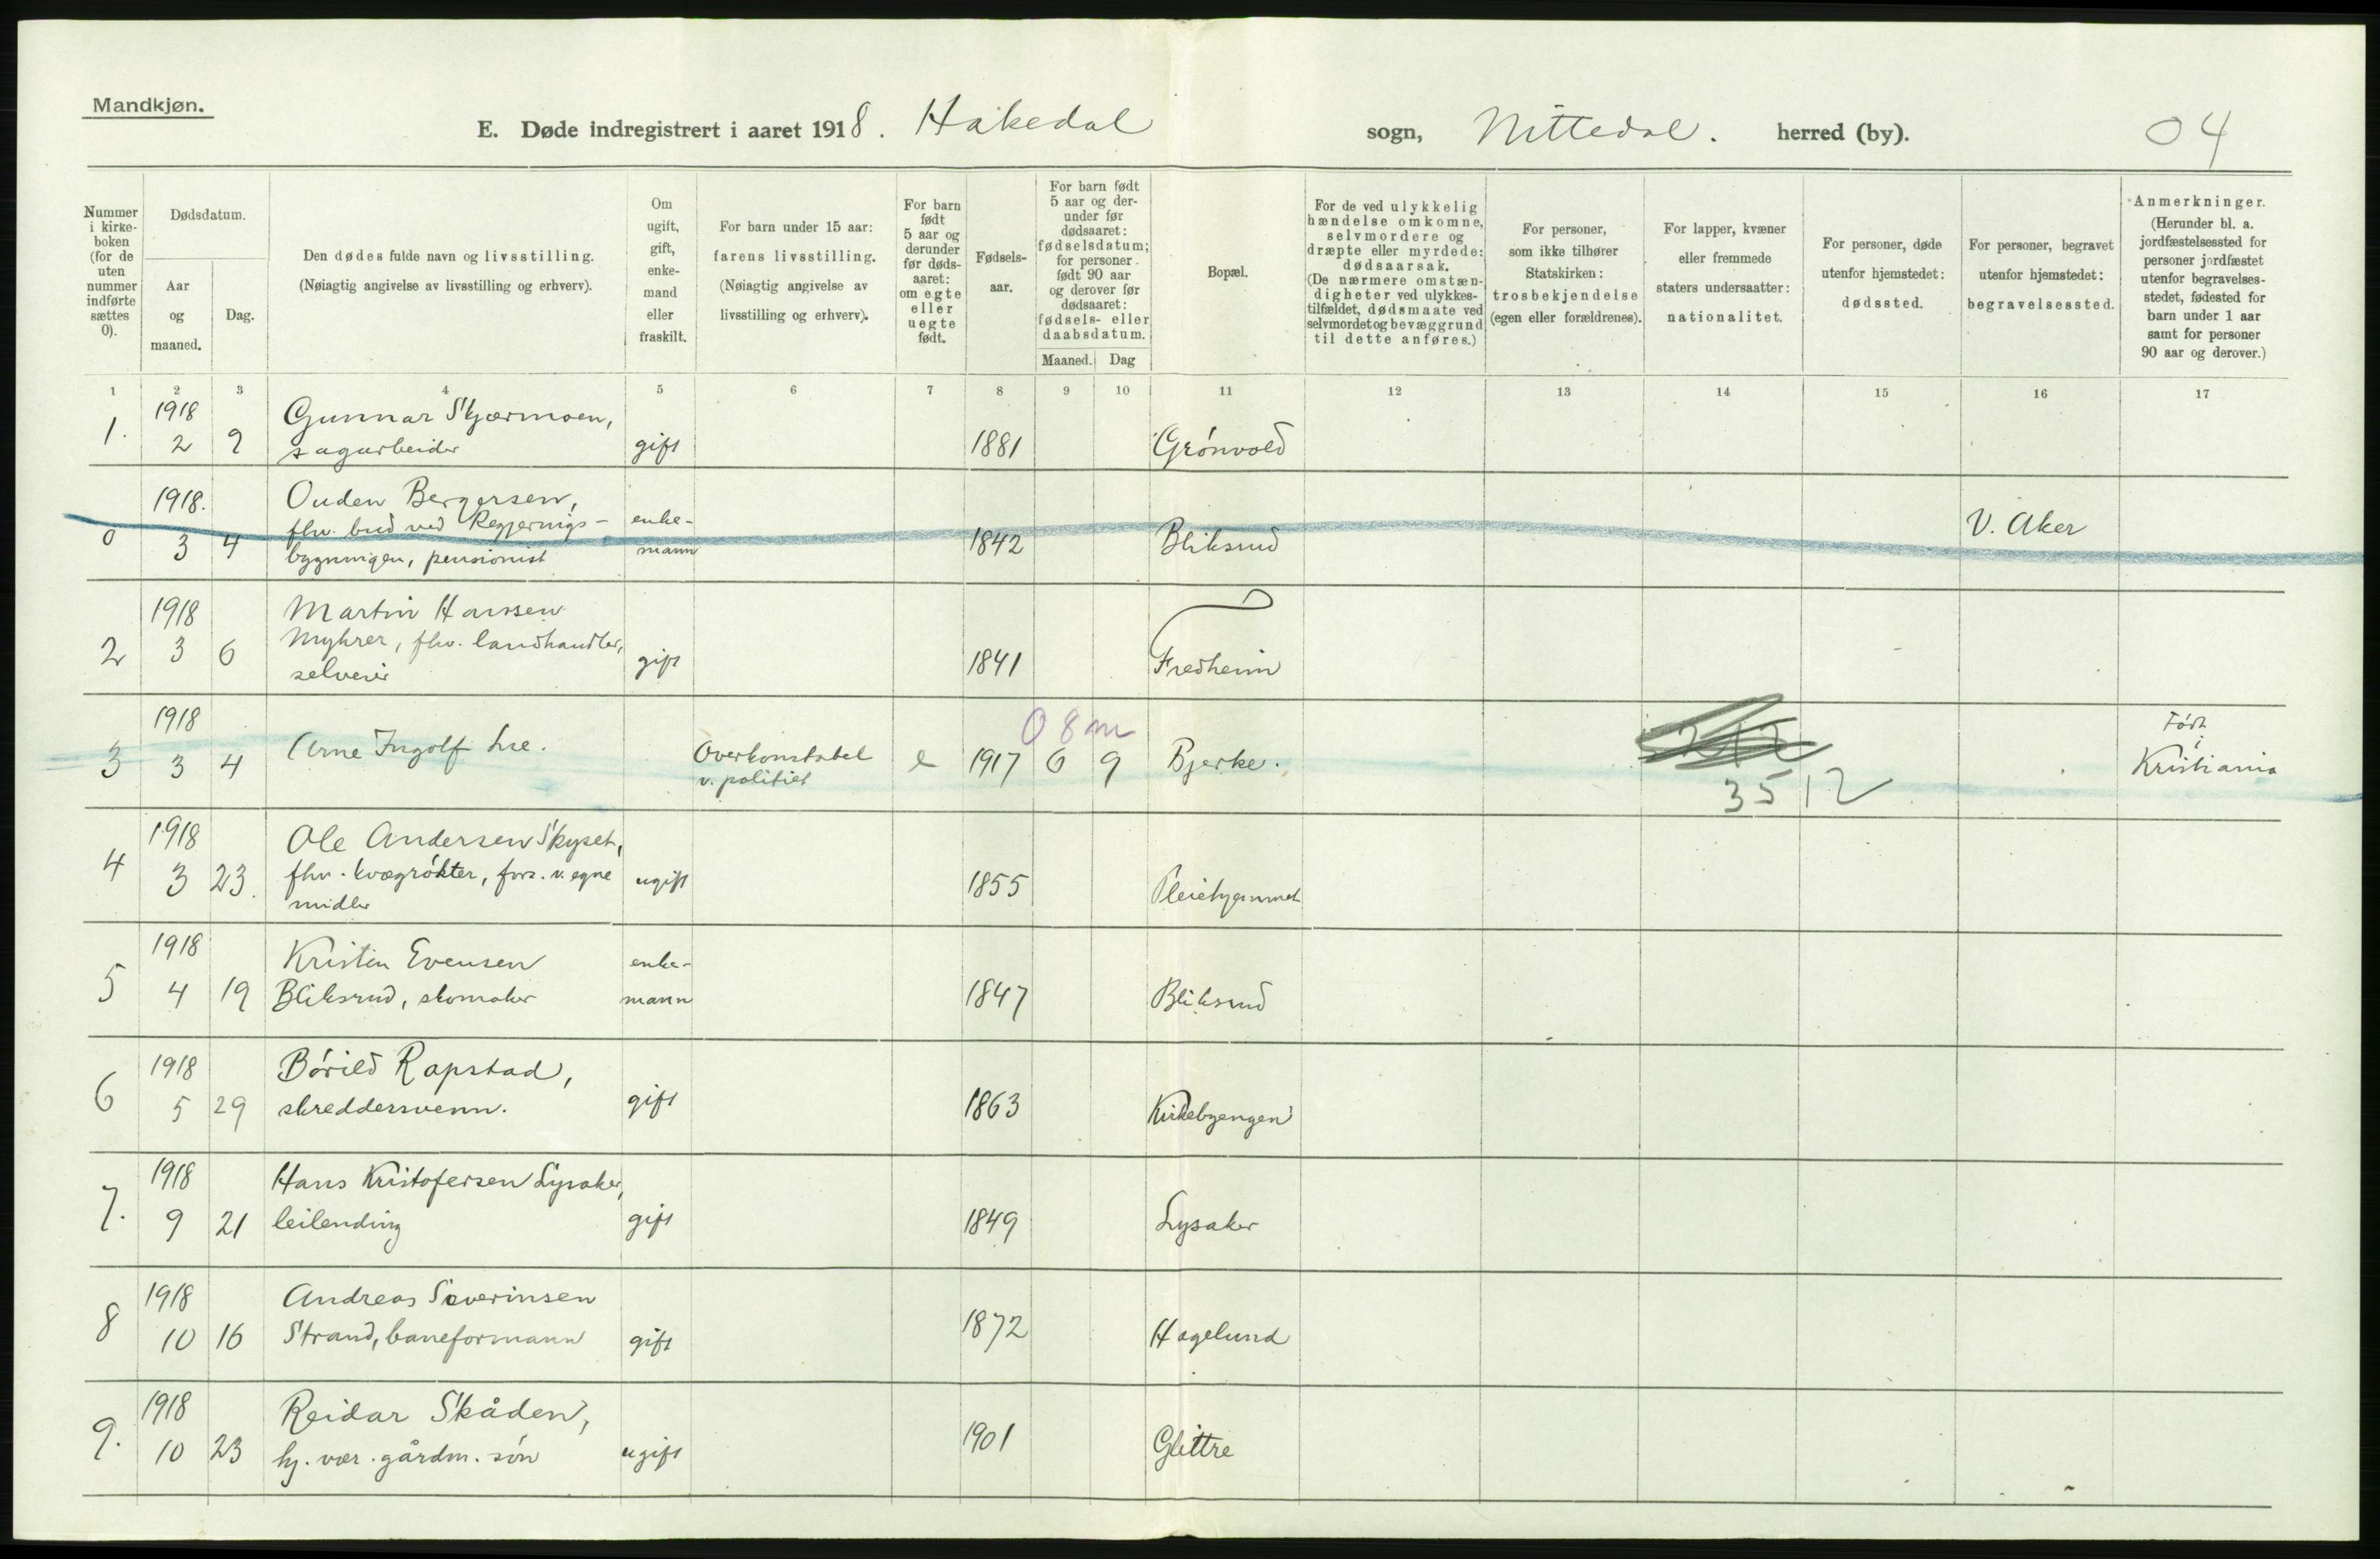 Mandkjøn.
E. Døde indregistrert i aaret 1918. Hakedal sogn, Nittedal. herred (by).
04
Nummer i kirke-boken (for de uten nummer indførte sættes 0).
Dødsdatum.
Aar og maaned.
Dag.
Den dødes fulde navn og livsstilling.
(Nøiagtig angivelse av livsstilling og erhverv).
Om ugift, gift, enke-mand eller fraskilt.
For barn under 15 aar: farens livsstilling.
(Nøiagtig angivelse av livsstilling og erhverv).
For barn født 5 aar og derunder før døds-aaret: om egte eller uegte født.
Fødsels-aar.
For barn født 5 aar og der-under før dødsaaret: fødselsdatum; for personer født 90 aar og derover før dødsaaret: fødsels- eller daabsdatum.
Maaned. Dag
Bopæl.
For de ved ulykkelig hændelse omkomne, selvmordere og dræpte eller myrdede: dødsaarsak.
(De nærmere omstæn-digheter ved ulykkes-tilfældet, dødsmaate ved selvmordet og bevæggrund til dette anføres.)
For personer, som ikke tilhører Statskirken: trosbekjendelse (egen eller forældrenes).
For lapper, kvæner eller fremmede staters undersaatter: nationalitet.
For personer, døde utenfor hjemstedet: dødssted.
For personer, begravet utenfor hjemstedet: begravelsessted.
Anmerkninger.
(Herunder bl. a. jordfæstelsessted for personer jordfæstet utenfor begravelses-stedet, fødested for barn under 1 aar samt for personer 90 aar og derover.)
1 2 3 4 5 6 7 8 9 10 11 12 13 14 15 16 17
1918 Gunnar Skjærmoen,
1. 2 9 sagarbeider gift 1881 Grónvold
1918. Ouden Bergersen,
flv. bud ved Regjernigs- enke- V. Aker
0 3 4 bygningen, pensionist mann 1842 Bliksrud
1918 Martin Hanssen
2 3 6 Myhrer, fhv. landhandler,
selveier gift 1841 Fredheim
1918 08m Fódt
3 3 4 Arne Ingolf Lie. Overkonstabel e 1917 6 9 Bjerke. i Kristiania
v. politiet 3512
1918 Ole Andersen Skyset,
4 3 23. fhv. kvægrókter, fors. v. egne ugift 1855 Pleiehjemmet
midler
1918 Kristen Evensen enke-
5 4 19 Bliksrud, skomaker mann 1847 Bliksrud
1918 Bórild Rapstad,
6 5 29 skreddersvenn. gift 1863 Kirkebyengen
1918 Hans Kristofersen Lysaker,
7. 9 21 leilending gift 1849 Lysaker
1918 Andreas Severinsen
8 10 16 Strand, baneformann gift 1872 Hagelund
1918 Reidar Skåden,
9. 10 23 hj. vær. gårdm. són ugift 1901 Glittre